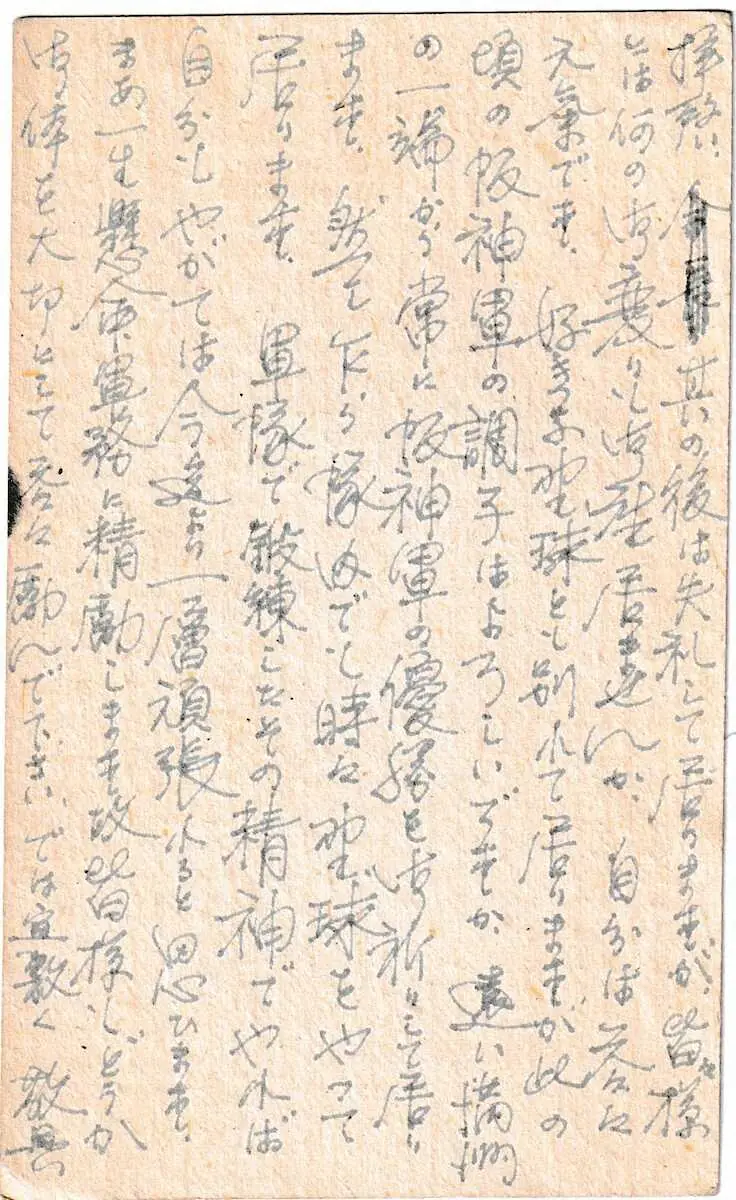 拝啓、其の後は失礼して居りますが、皆々様
には何の御変りも御座居ませんか、自分は益々
元気です、好きな野球とも別れて居りますが此の
頃の阪神軍の調子はよろしいですか、遠い満洲
の一端から常に阪神軍の優勝を御祈りして居り
ます、然し乍ら隊内でも時々野球をやって
居ります、軍隊で鍛練したその精神でやれば
自分もやがては今迄より一層頑張れると思ひます、
まあ一生懸命軍務に精励します故皆様もどうか
御体を大切にして益々励んで下さい、では宜敷く 敬具